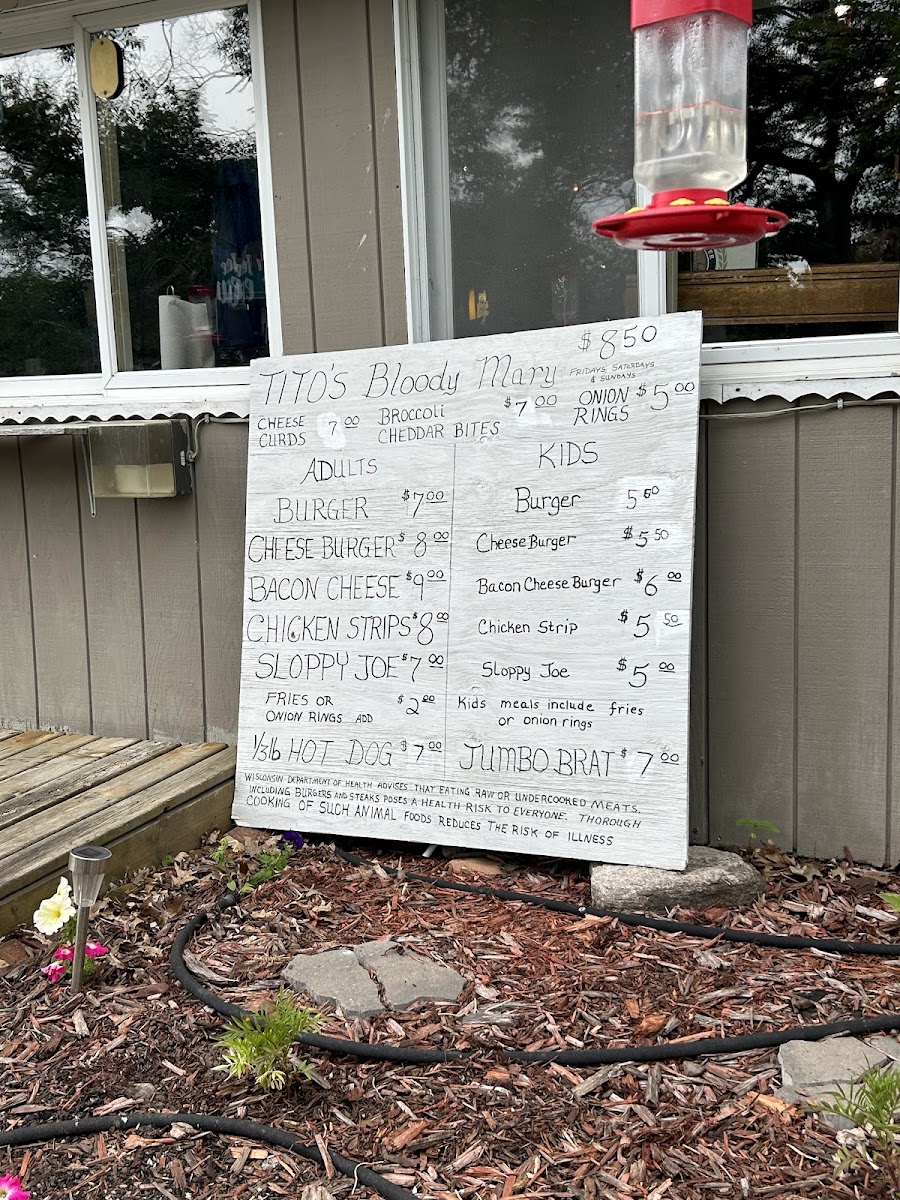 TITO'S Bloody Mary $8.50
FRIDAYS, SATURDAYS
& SUNDAYS
CHEESE CURDS 7.00
BROCCOLI CHEDDAR BITES $7.00
ONION RINGS $5.00
ADULTS
BURGER $7.00
CHEESE BURGER $8.00
BACON CHEESE $9.00
CHICKEN STRIPS $8.00
SLOPPY JOE $7.00
FRIES OR
ONION RINGS ADD $2.00
1/3 lb HOT DOG $7.00
KIDS
Burger 5.50
Cheese Burger $5.50
Bacon Cheese Burger $6.00
Chicken Strip $5.50
Sloppy Joe $5.00
Kids meals include fries
or onion rings
JUMBO BRAT $7.00
WISCONSIN DEPARTMENT OF HEALTH ADVISES THAT EATING RAW OR UNDERCOOKED MEATS,
INCLUDING BURGERS AND STEAKS POSES A HEALTH RISK TO EVERYONE. THOROUGH
COOKING OF SUCH ANIMAL FOODS REDUCES THE RISK OF ILLNESS